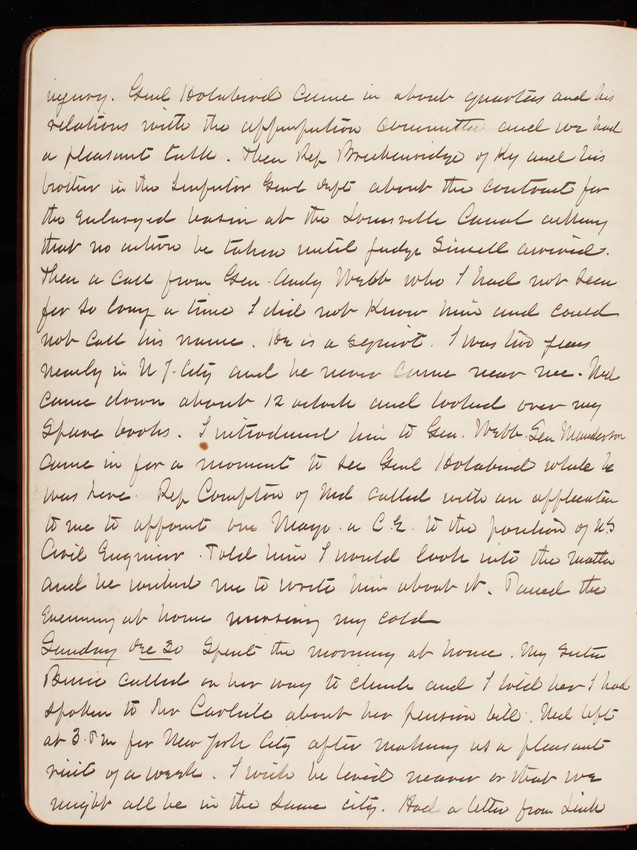 injury. Genl Holabird came in about quarters and his
relations with the appropriation committee and we had
a pleasant talk. Then Rep Breckenridge of Ky and his
brother in the Inspector Genl Dept about the contract for
the enlarged basin at the Louisville Canal asking
that no action be taken until Judge arrived.
Then a call from Gen. Andy Webb who I had not seen
for so long a time I did not know him and could
not call his name. He is a. I was two years
nearly in N Y. City and he never came near me. Ned
came down about 12 oclock and looked over my
spare books. I introduced him to Gen. Webb. Gen Manderson
came in for a moment to see Genl Holabird while he
was here. Rep Compton of Md called with an application
to me to appoint one Mayo a C.E. to the position of US
Civil Engineer. Told him I would look into the matter
and he wished me to write him about it. Passed the
evening at home nursing my cold
Sunday Dec 30 Spent the morning at home. My sister
called on her way to church and I told her I had
spoken to Mr Carlisle about her pension bill. Ned left
at 3. P m for New York City after making us a pleasant
visit of a week. I wish he lived nearer or that we
might all be in the same city. Had a letter from